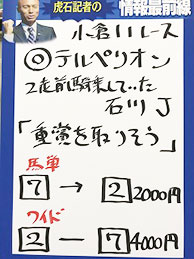 虎石記者の
情報最前線
小倉11レース
◎テルペリオン
2走前騎乗していた
石川J
「重賞を取りそう」
馬単
7 → 2 2000円
ワイド
2 ー 7 4000円